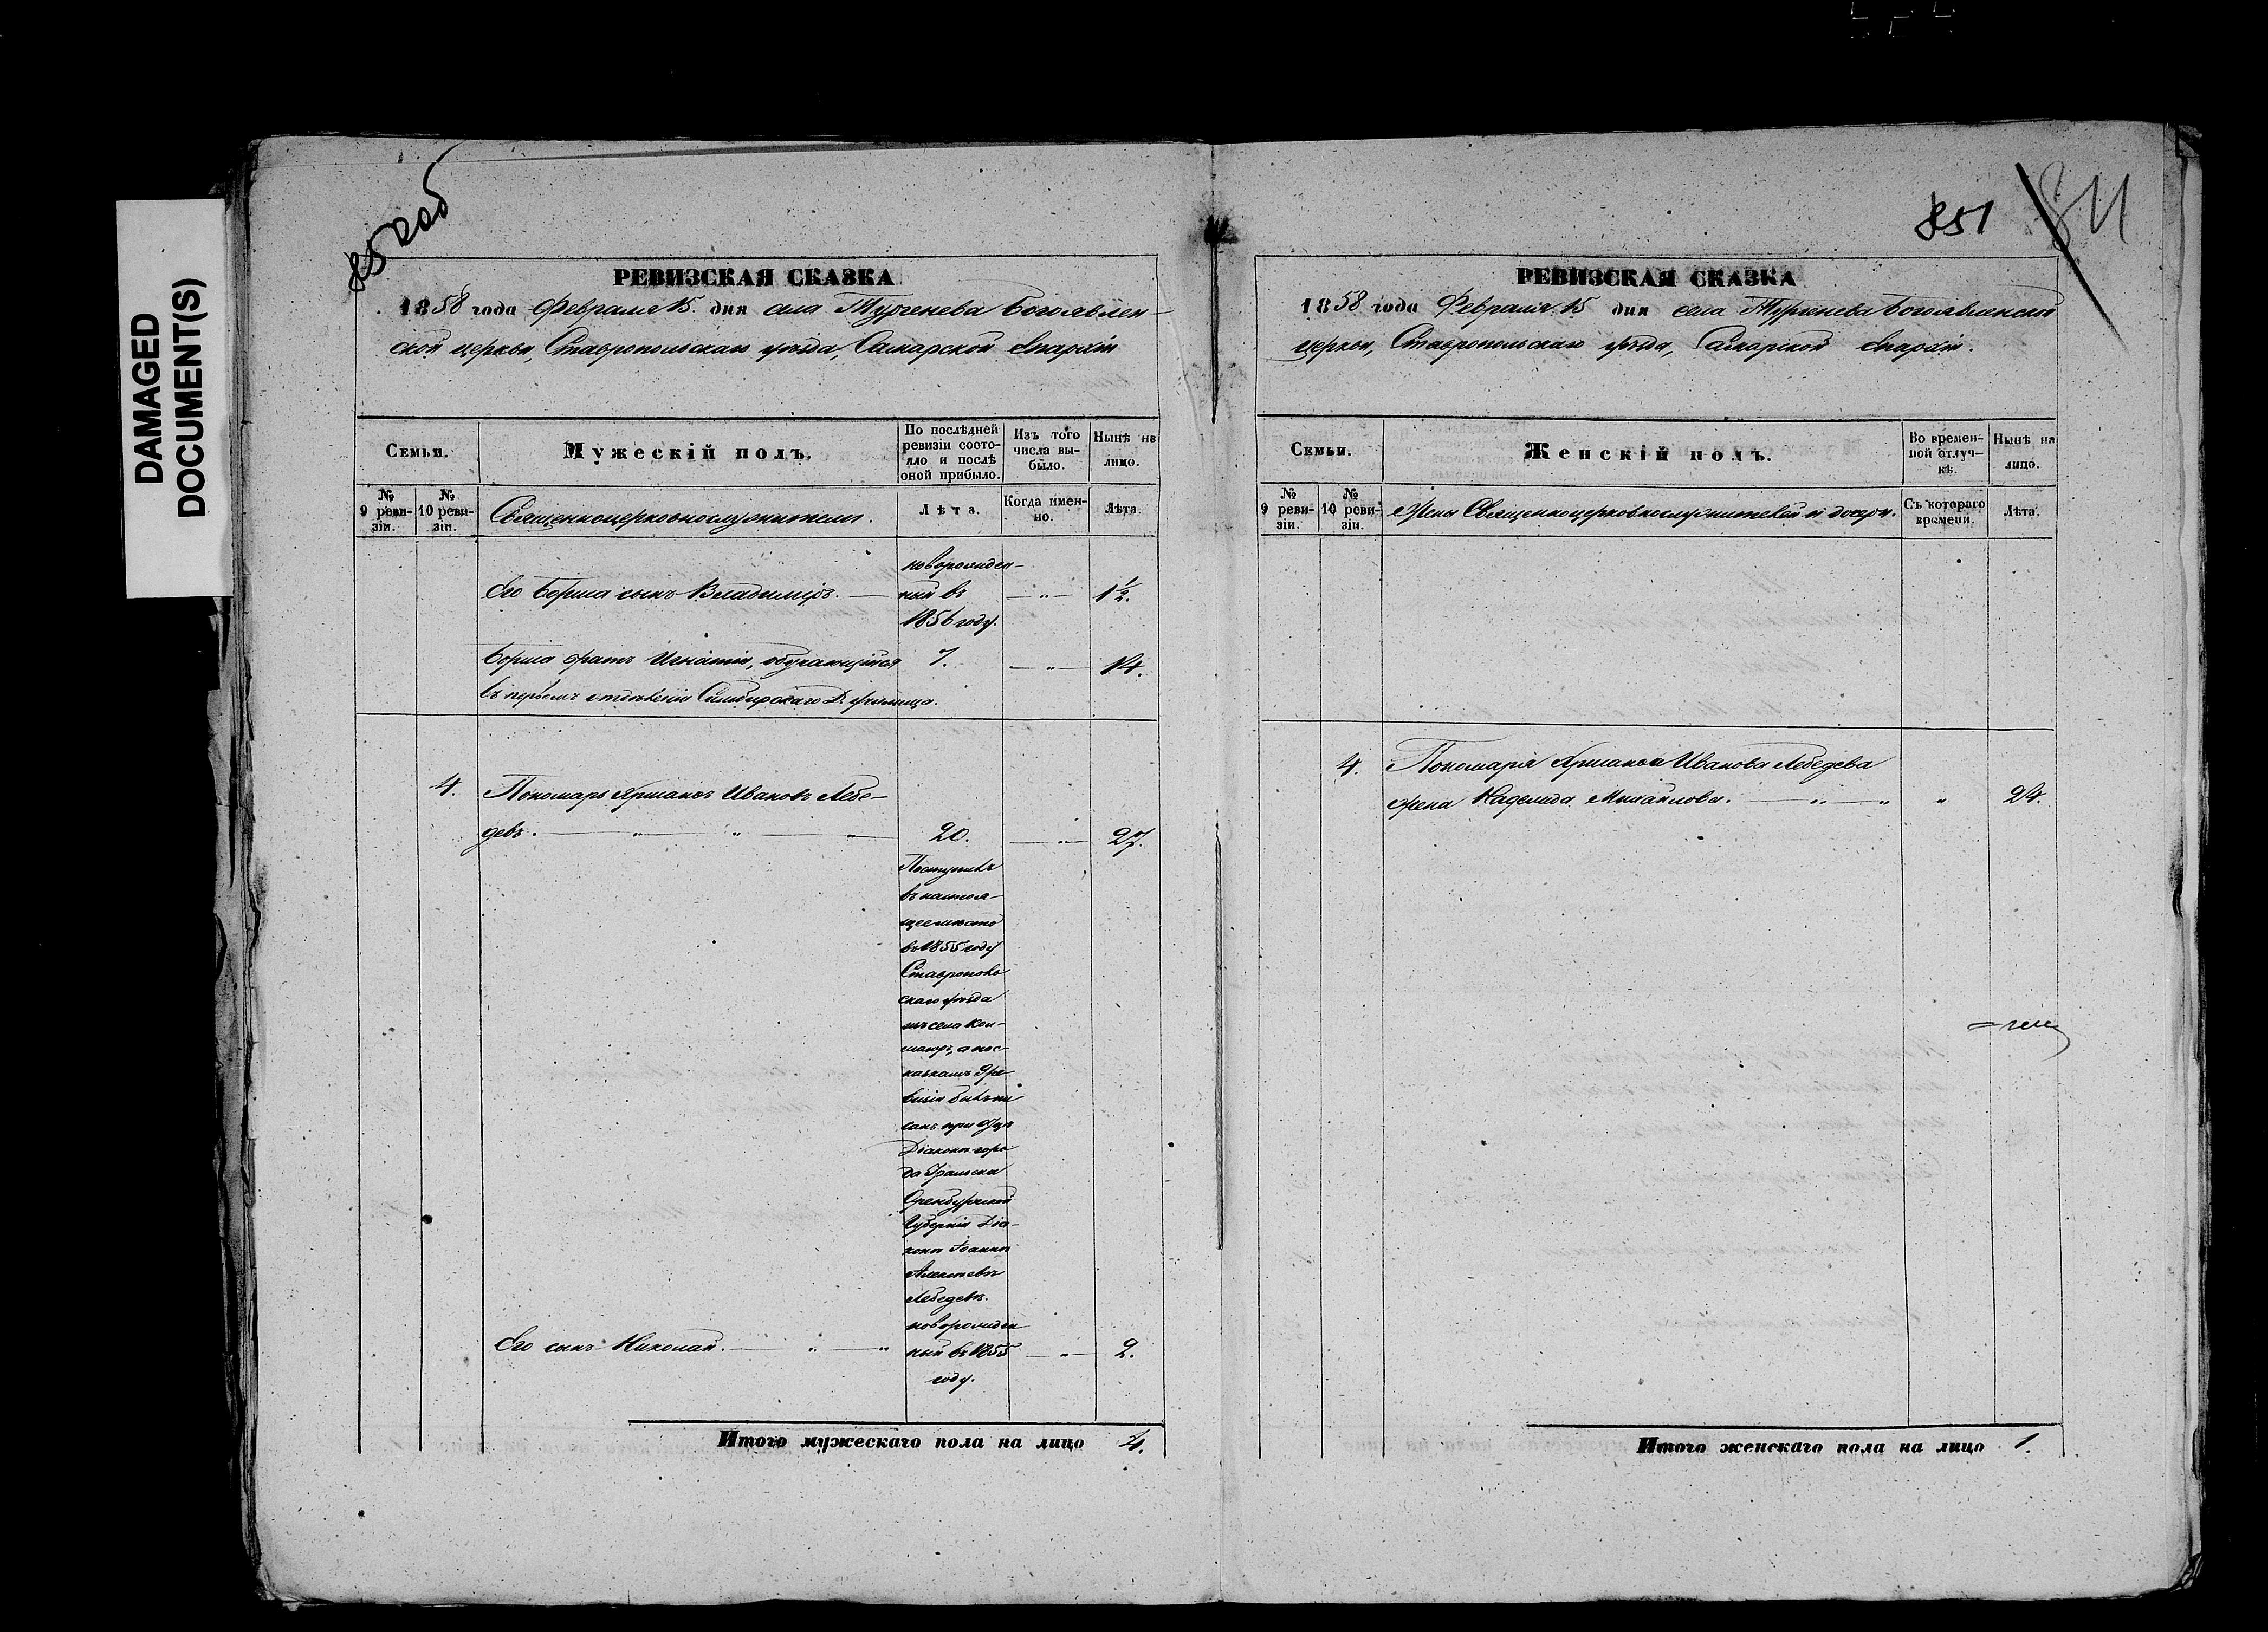 DAMAGED
DOCUMENT(S)
850 об
РЕВИЗСКАЯ СКАЗКА
1858 года Февраля 15. дня села Тургенева Богоявлен-
ской церкви, Ставропольскаго уѣзда, Самарской Епархіи
Семьи.
Мужескій полъ.
По послѣдней
ревизіи состо-
яло и послѣ
оной прибыло.
Изъ того
числа вы-
было.
Нынѣ на
лицо.
№
9 реви-
зіи.
№
10 реви-
зіи.
Священноцерковнослужители.
Лѣта.
Когда имен-
но.
Лѣта.
новорожден-
Его Бориса сынъ Владиміръ. — ный въ — „ — 1½.
1856 году.
Бориса братъ Игнатій, обучающійся 7. — „ — 14.
въ первомъ отдѣленіи Симбирскаго Д. училища.
4. Пономарь Ивановъ Лебе-
девъ. — „ — „ — „ — 20. — „ — 27.
Поступилъ
въ настоя-
щее мѣсто
въ 1855 году
Ставрополь
скаго уѣзда
изъ села
а по с-
казкамъ 9 ре
визіи былъ пи
санъ при отцѣ
Діаконѣ горо
да Уральска
Оренбургской
Губерніи Діа-
конѣ Іоаннѣ
Алексѣевѣ
Лебедевѣ.
новорожден
Его сынъ Николай. — „ — „ ный въ 1855 — „ — 2.
году.
Итого мужескаго пола на лицо 4.
851 841
РЕВИЗСКАЯ СКАЗКА
1858 года Февраля 15 дня села Тургенева Богоявленской
церкви, Ставропольскаго уѣзда, Самарской Епархіи.
Семьи.
Женскій полъ.
Во времен-
ной отлуч-
кѣ.
Нынѣ на
лицо.
№
9 реви-
зіи.
№
10 реви-
зіи.
Жены Священноцерковнослужителей и дочери.
Съ котораго
времени.
Лѣта.
4. Пономаря Иванова Лебедева
жена Надежда Михайлова. — „ — „ „ 24.
Итого женскаго пола на лицо 1.